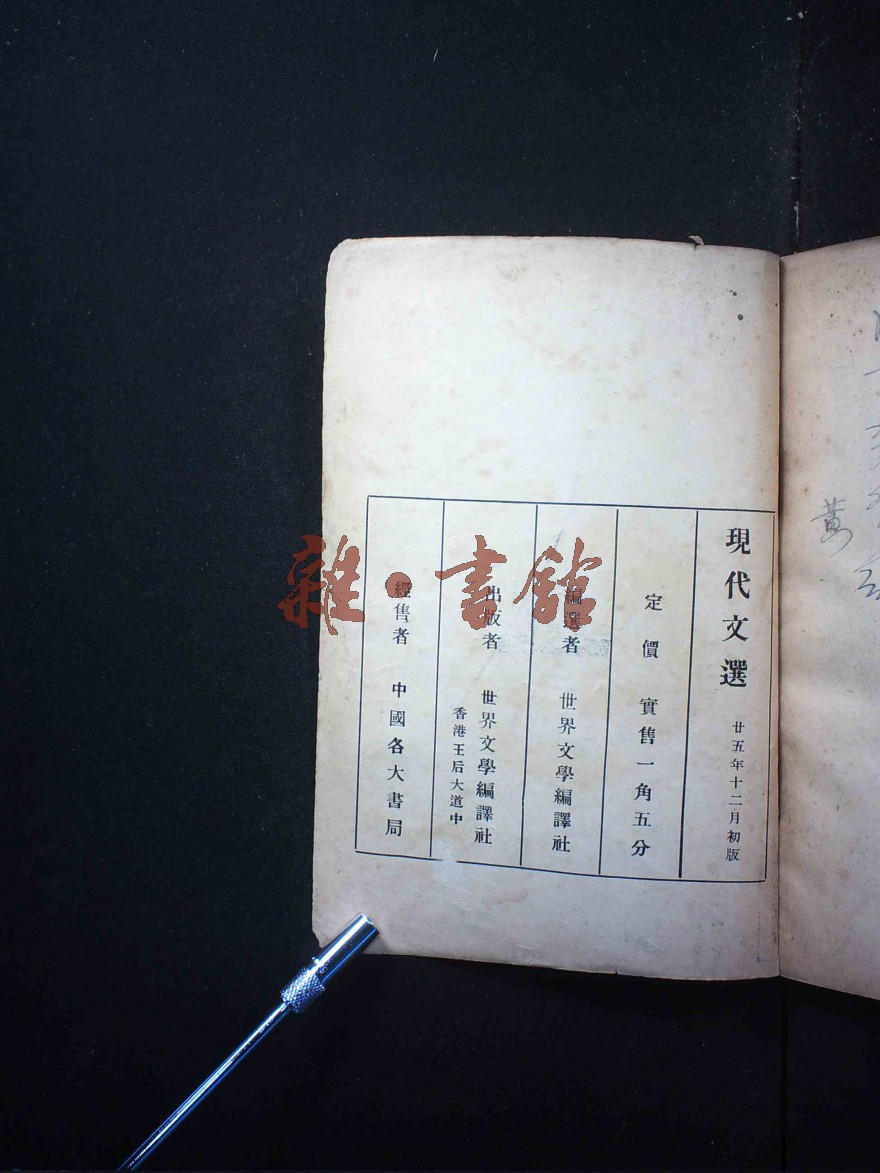 現代文選
廿五年十二月初版
定價 實售一角五分
編選者 世界文學編譯社
出版者 世界文學編譯社
香港王后大道中
經售者 中國各大書局
雜·書館